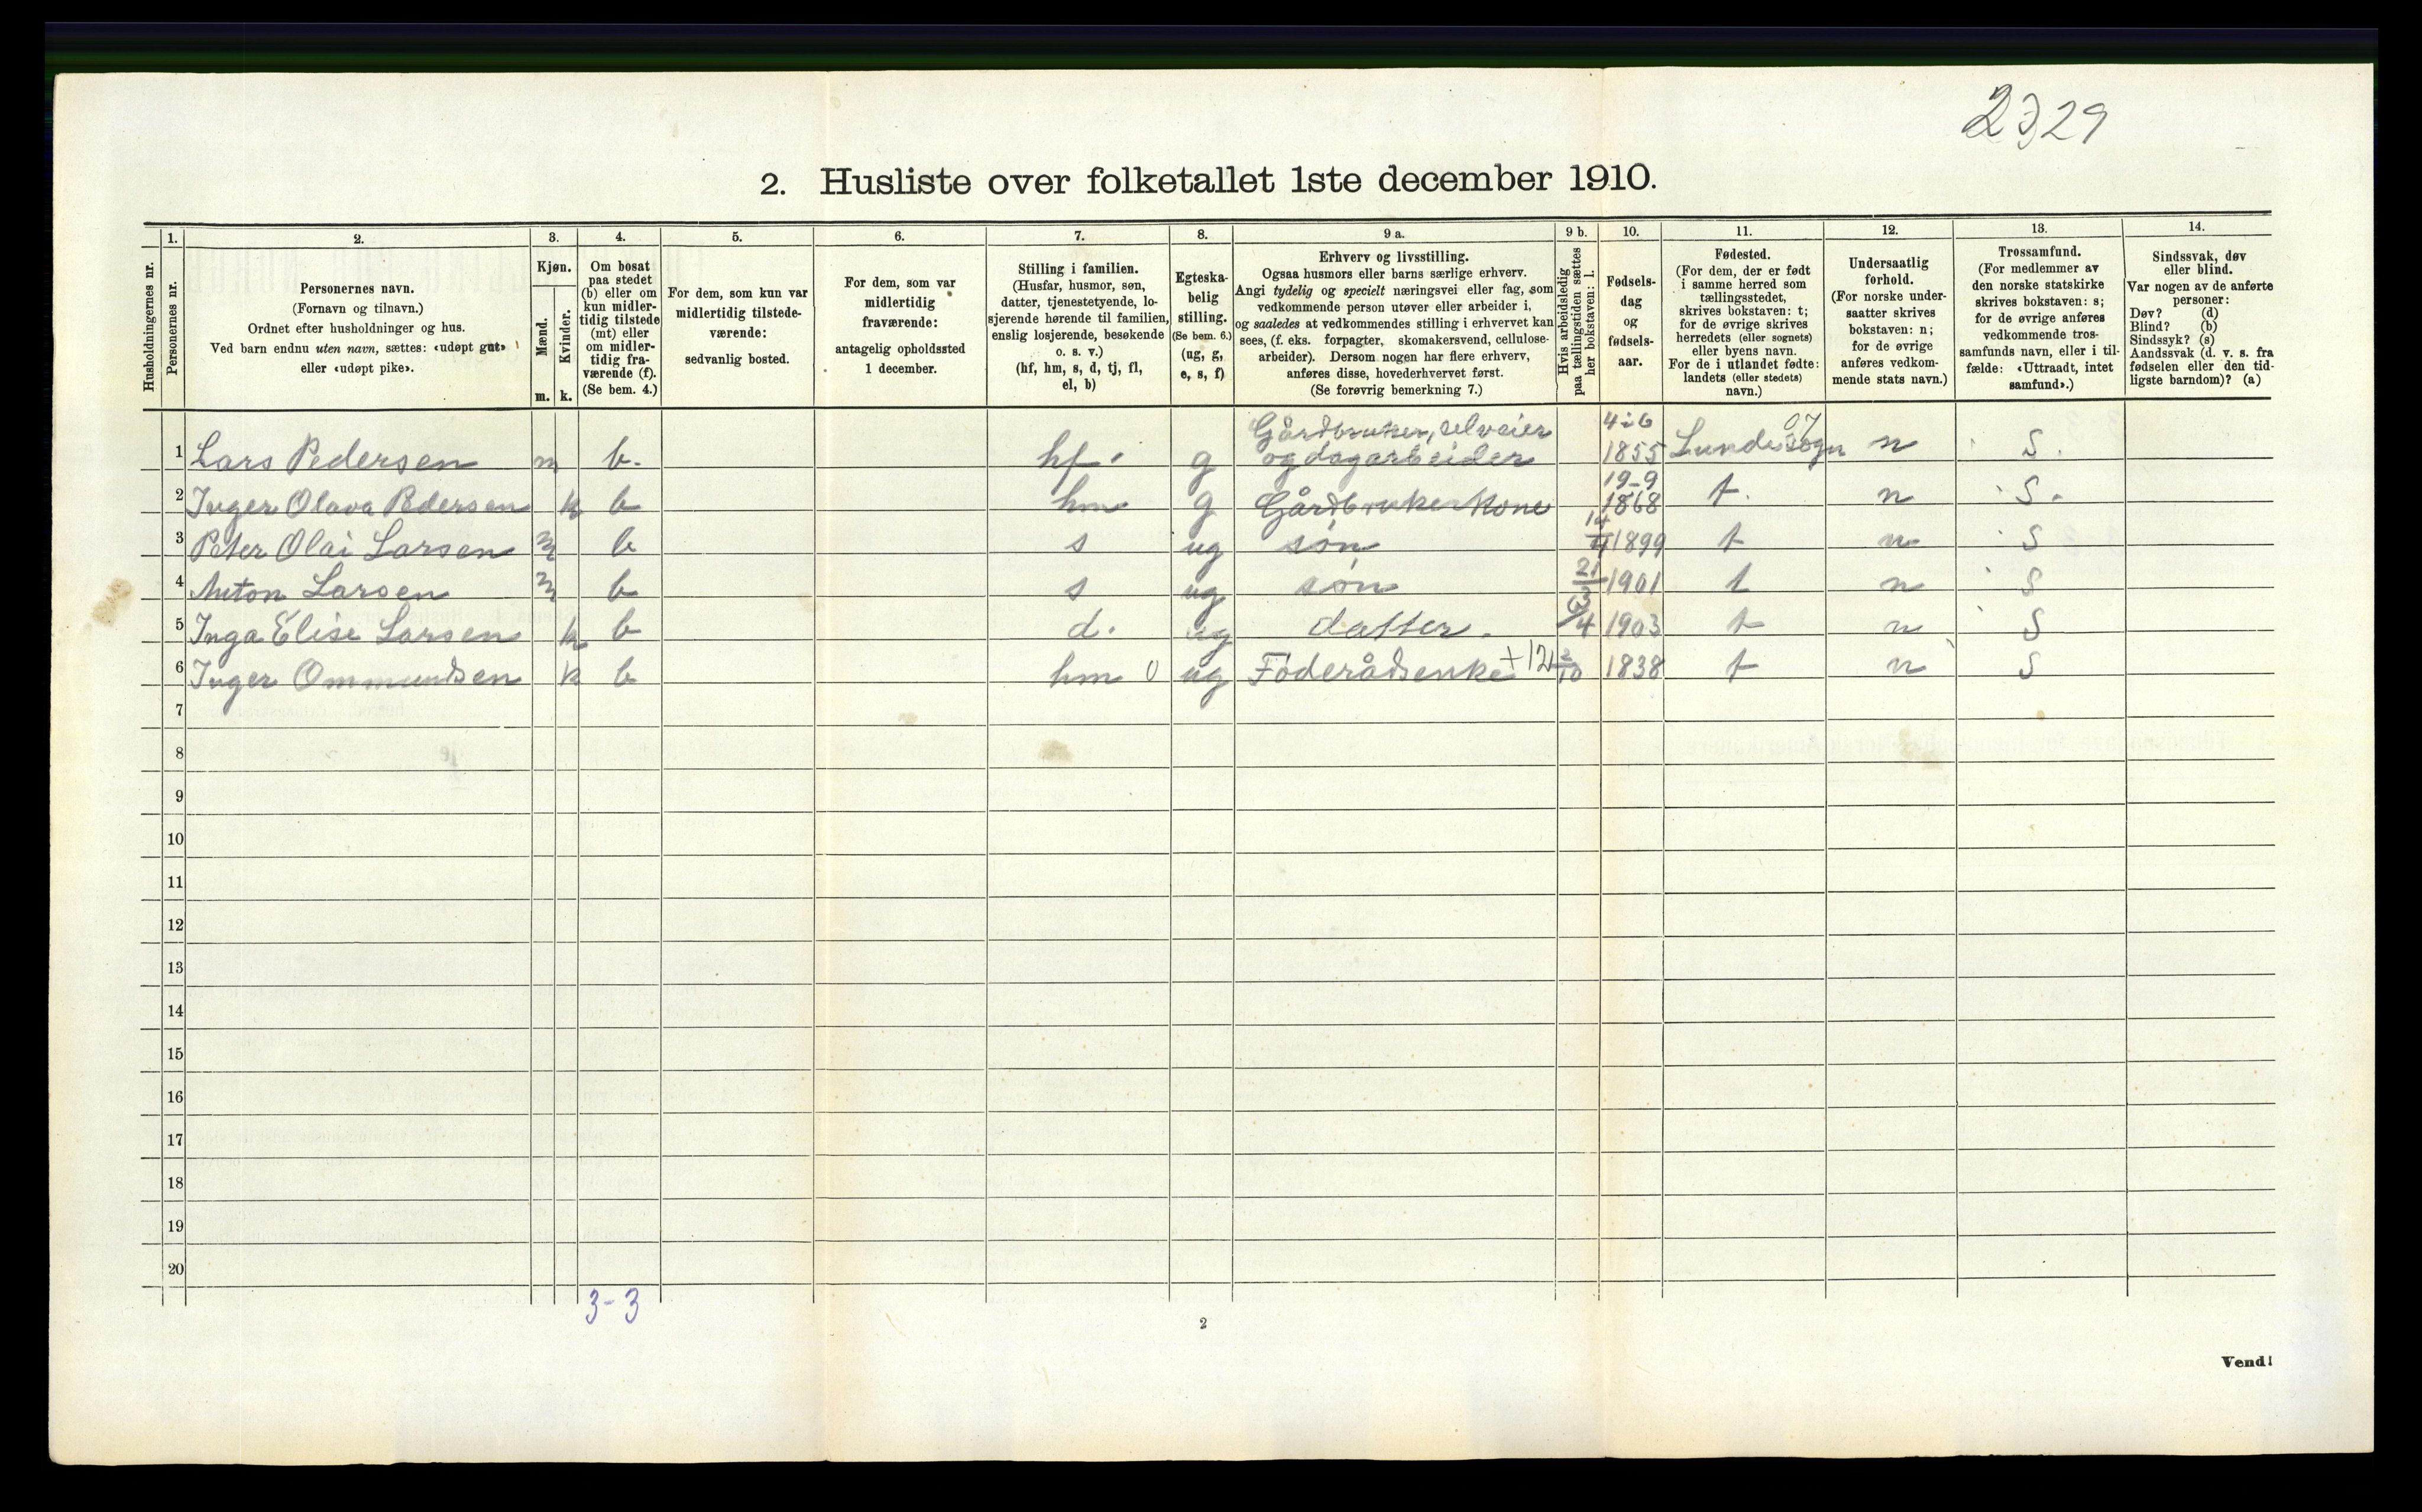 2329
2. Husliste over folketallet 1ste december 1910.
Husholdningernes nr.
1.
Personernes nr.
2.
Personernes navn.
(Fornavn og tilnavn.)
Ordnet efter husholdninger og hus.
Ved barn endnu uten navn, sættes: «udøpt gut»
eller «udøpt pike».
3.
Kjøn.
Mænd.
Kvinder.
m. k.
4.
Om bosat
paa stedet
(b) eller om
kun midler-
tidig tilstede
(mt) eller
om midler-
tidig fra-
værende (f).
(Se bem. 4.)
5.
For dem, som kun var
midlertidig tilstede-
værende:
sedvanlig bosted.
6.
For dem, som var
midlertidig
fraværende:
antagelig opholdssted
1 december.
7.
Stilling i familien.
(Husfar, husmor, søn,
datter, tjenestetyende, lo-
sjerende hørende til familien,
enslig losjerende, besøkende
o. s. v.)
(hf, hm, s, d, tj, fl,
el, b)
8.
Egteska-
belig
stilling.
(Se bem. 6.)
(ug, g,
e, s, f)
9 a.
Erhverv og livsstilling.
Ogsaa husmors eller barns særlige erhverv.
Angi tydelig og specielt næringsvei eller fag, som
vedkommende person utøver eller arbeider i,
og saaledes at vedkommendes stilling i erhvervet kan
sees, (f. eks. forpagter, skomakersvend, cellulose-
arbeider). Dersom nogen har flere erhverv,
anføres disse, hovederhvervet først.
(Se forøvrig bemerkning 7.)
9 b.
Hvis arbeidsledig
paa tællingstiden sættes
her bokstaven: l.
10.
Fødsels-
dag
og
fødsels-
aar.
11.
Fødested.
(For dem, der er født
i samme herred som
tællingsstedet,
skrives bokstaven: t;
for de øvrige skrives
herredets (eller sognets)
eller byens navn.
For de i utlandet fødte:
landets (eller stedets)
navn.)
12.
Undersaatlig
forhold.
(For norske under-
saatter skrives
bokstaven: n;
for de øvrige
anføres vedkom-
mende stats navn.)
13.
Trossamfund.
(For medlemmer av
den norske statskirke
skrives bokstaven: s;
for de øvrige anføres
vedkommende tros-
samfunds navn, eller i til-
fælde: «Uttraadt, intet
samfund».)
14.
Sindssvak, døv
eller blind.
Var nogen av de anførte
personer:
Døv? (d)
Blind? (b)
Sindssyk? (s)
Aandssvak (d. v. s. fra
fødselen eller den tid-
ligste barndom)? (a)
Gårdbruker, selveier 4-6 07
1 Lars Pedersen m b. hf. g og dagarbeider 1855 Lunde sogn n S.
19-9
2 Inger Olava Pedersen k b hm g Gårdbrukerkone 1868 t. n S.
3 Peter Olai Larsen m b s ug søn 14/4 1899 t n S
4 Anton Larsen m b s ug søn 21/3 1901 t n S
5 Inga Elise Larsen k b d. ug datter. /4 1903 t n S
6 Inger Ommundsen k b hm 0 ug Føderådsenke +12 2/10 1838 t n S
7
8
9
10
11
12
13
14
15
16
17
18
19
20
3-3
2
Vend!